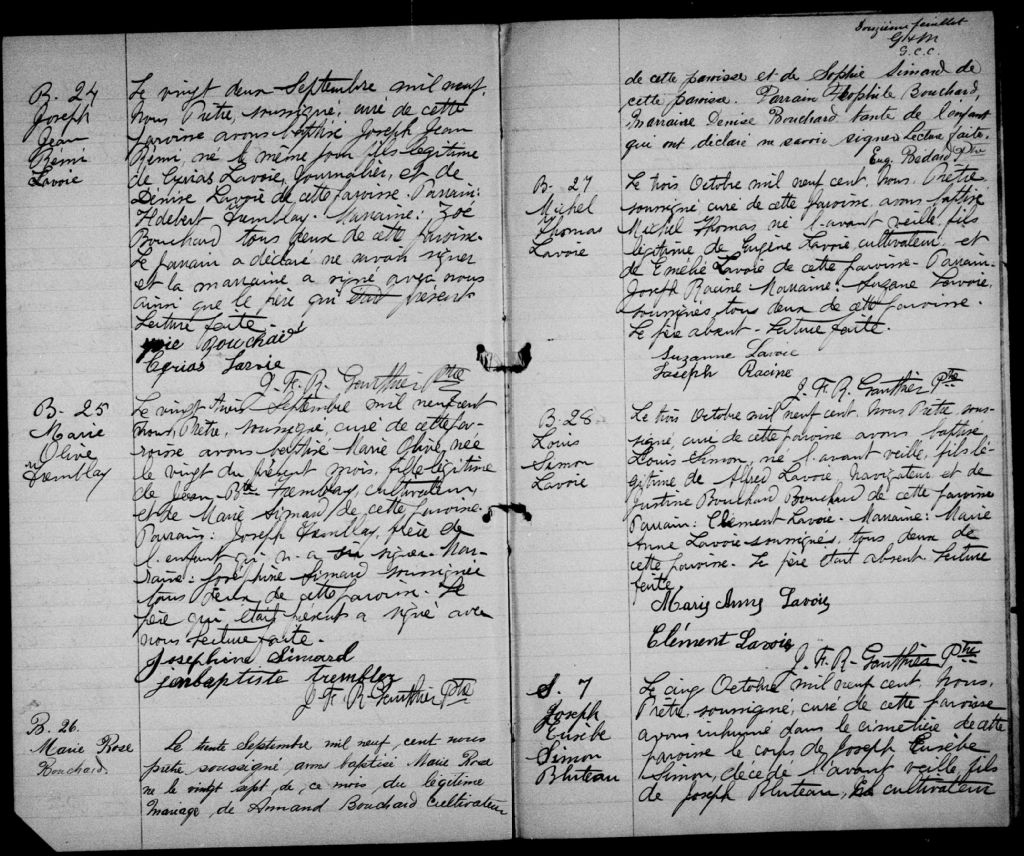 B. 24
Joseph
Jean
Rémi
Lavoie
Le vingt deux Septembre mil neuf.
Nous Prêtre, soussigné, curé de cette
paroisse avons baptisé Joseph Jean
Rémi, né le même jour fils légitime
de Cyrias Lavoie, Journalier, et de
Dénise Lavoie de cette paroisse. Parrain:
Hdebert Tremblay. Marraine: Zoé
Bouchard tous deux de cette paroisse.
Le parrain a déclaré ne savoir signer
et la marraine a signé avec nous
ainsi que le père qui était présent.
Lecture faite.
Bouchard
Cyrias Lavoie
J. F. R. Gauthier Ptre
B. 25
Marie
Olive
Tremblay
Le vingt trois Septembre mil neuf cent
nous, Prêtre, soussigné, curé de cette pa-
roisse avons baptisé Marie Olive, née
le vingt du présent mois, fille légitime
de Jean Bte Tremblay, cultivateur,
et de Marie Simard de cette paroisse.
Parrain: Joseph Tremblay, frère de
l'enfant qui n'a su signer. Mar-
raine: Joséphine Simard soussignée
tous deux de cette paroisse. Le
père qui était présent a signé avec
nous Lecture faite.
Joséphine Simard
jenbaptiste tremblay
J. F. R. Gauthier Ptre
B. 26.
Marie Rose
Bouchard.
Le trente Septembre mil neuf, cent nous
prêtre soussigné avons baptisé Marie Rose
né le vingt sept de, ce mois du légitime
Mariage, de Armand Bouchard cultivateur
Douzième feuillet
G & M
G.C.C.
de cette paroisse et de Sophie Simard de
cette paroisse. Parrain Théophile Bouchard,
marraine Denise Bouchard tante de l'enfant
qui ont déclaré ne savoir signer Lecture faite.
Eug. Bédard Ptre
B. 27
Michel
Thomas
Lavoie
Le trois Octobre mil neuf cent. Nous Prêtre
soussigné curé de cette paroisse avons baptisé
Michel Thomas né l'avant veille, fils
légitime de Eugène Lavoie cultivateur et
de Emélie Lavoie de cette paroisse. Parrain.
Joseph Racine Marraine. Suzane Lavoie.
soussignés, tous deux de cette paroisse.
Le père absent. Lecture faite.
Suzanne Lavoie
Joseph Racine
J. F. R. Gauthier Ptre
B. 28
Louis
Simon
Lavoie
Le trois Octobre mil neuf cent. Nous Prêtre, sous-
signé, curé de cette paroisse avons baptisé
Louis Simon, né l'avant veille, fils lé-
gitime de Alfred Lavoie, Navigateur et de
Justine Bouchard Bouchard de cette paroisse
Parrain: Clément Lavoie. Marraine: Marie
Anne Lavoie soussignés, tous deux de
cette paroisse. Le père était absent. Lecture
faite
Marie Anne Lavoie
Clément Lavoie
J. F. R. Gauthier Ptre
S. 7
Joseph
Eusèbe
Simon
Bluteau
Le cinq Octobre mil neuf cent, Nous,
Prêtre, soussigné, curé de cette paroisse
avons inhumé dans le cimetière de cette
paroisse le corps de Joseph Eusèbe
Simon, décédé l'avant veille, fils
de Joseph Bluteau, cultivateur